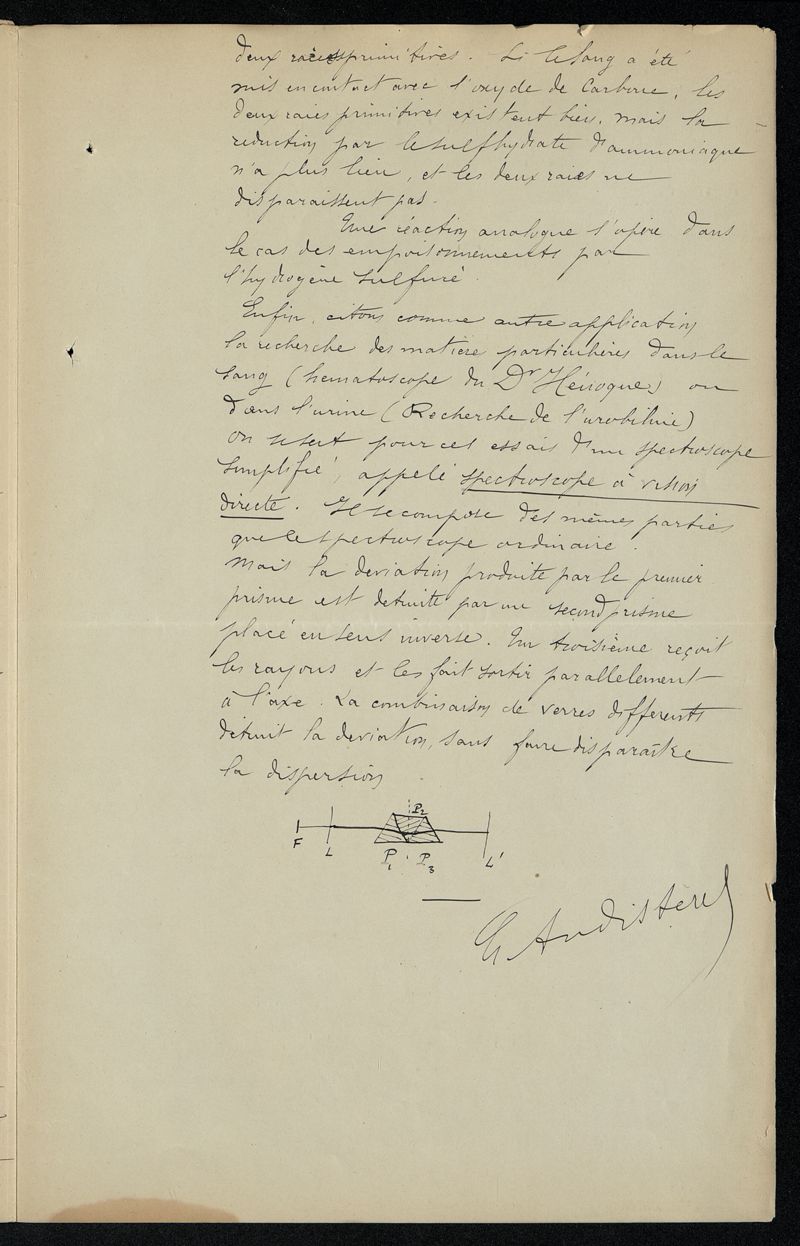 deux raies primitives. Si le sang a été
mis en contact avec l'oxyde de Carbone, les
deux raies primitives existent bien, mais la
réduction par le sulfhydrate d'ammoniaque
n'a plus lieu, et les deux raies ne
disparaissent pas.
Une réaction analogue s'opère dans
le cas des empoisonnements par
l'hydrogène sulfuré.
Enfin, citons comme autre application
la recherche des matière particulières dans le
sang (hematoscope du Dr Hénoque) ou
dans l'urine (Recherche de l'urobiline)
on se sert pour ces essais d'un spectroscope
simplifié, appelé spectroscope à vision
directe. Il se compose des mêmes parties
que le spectroscope ordinaire.
Mais la deviation produite par le premier
prisme est detruite par un second prisme
placé en sens inverse. Un troisième reçoit
les rayons et les fait sortir parallelement
à l'axe. La combinaison de verres differents
détruit la deviation, sans faire disparaître
la dispersion.
P2
F L P1 P3 L'
G Andistère